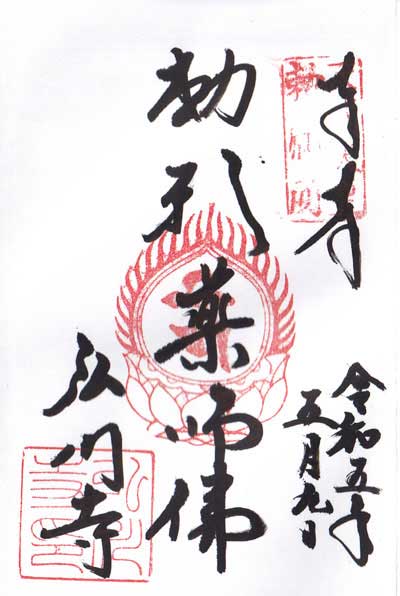 奉拝
勅 薬師佛
弘川寺
令和五年
五月九日